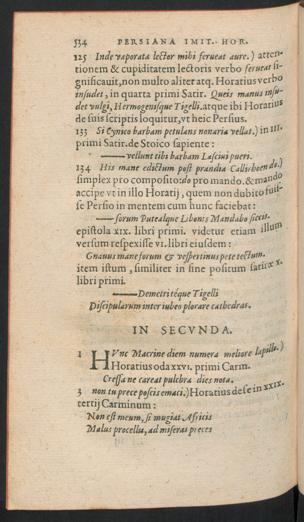 534 PERSIANA IMIT. HOR.
125 Inde vaporata lector mihi ferueat aure.) atten-
tionem & cupiditatem lectoris verbo ferueat si-
gnificauit, non multo aliter atq. Horatius verbo
insudet, in quarta primi Satir. Queis manus insu-
det vulgi, Hermogenisque Tigelli. atque ibi Horatius
de suis scriptis loquitur, vt heic Persius.
133 Si Cynico barbam petulans nonaria vellat.) in III.
primi Satir. de Stoico sapiente:
——vellunt tibi barbam Lasciui pueri.
134 His mane edictum post prandia Callirhoen do.)
simplex pro composito: do pro mando. & mando
accipe vt in illo Horatij, quem non dubito fuis-
se Persio in mentem cum hunc faciebat:
——forum Putealque Libonis Mandabo siccis.
epistola XIX. libri primi. videtur etiam illum
versum respexisse VI. libri eiusdem:
Gnauus mane forum & vespertinus pete tectum.
item istum, similiter in fine positum satiræ X.
libri primi.
——Demetri téque Tigelli
Discipularum inter iubeo plorare cathedras.
IN SECVNDA.
1 HVnc Macrine diem numera meliore lapillo.)
Horatius oda XXVI. primi Carm.
Cressa ne careat pulchra dies nota.
3 non tu prece poscis emaci.) Horatius de se in XXIX.
tertij Carminum:
Non est meum, si mugiat Africis
Malus procellis, ad miseras preces